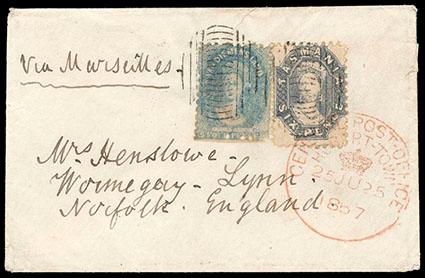 Via Marseilles
TASMANIA
SIX PE
Mrs Henslowe.
Wormegay - Lynn.
Norfolk. England
POST-OFFICE
25 JU 25
1857